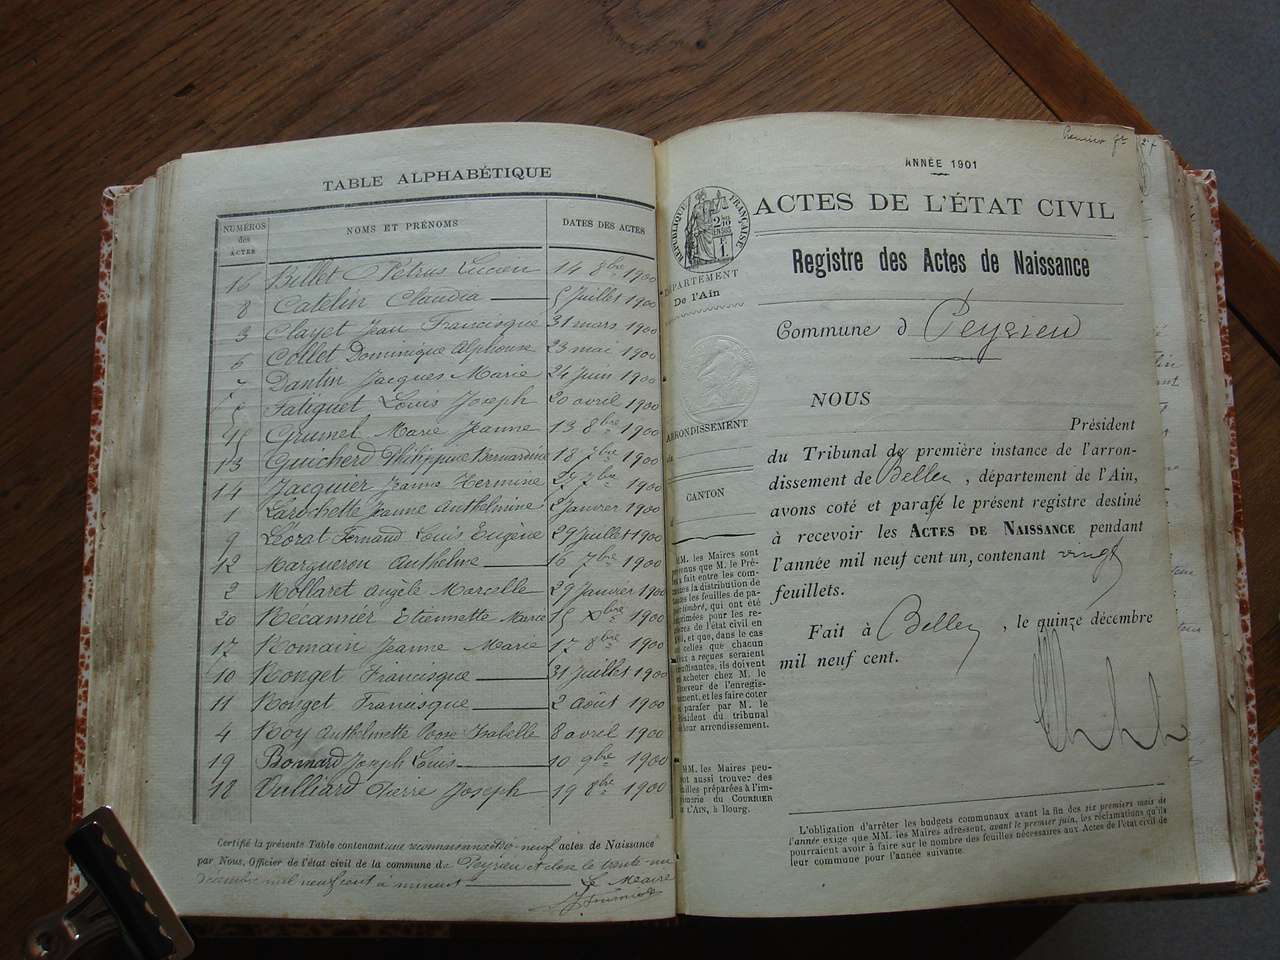 TABLE ALPHABÉTIQUE
NUMÉROS des ACTES NOMS ET PRÉNOMS DATES DES ACTES
16 Billet Pétrus Lucien 14 8bre 1900
8 Catelin Claudia 5 Juillet 1900
3 Clayet Jean Francisque 31 mars 1900
6 Collet Dominique Alphonse 23 mai 1900
7 Dantin Jacques Marie 24 Juin 1900
5 Fatiguet Louis Joseph 20 avril 1900
15 Marie Jeanne 13 8bre 1900
13 Guicherd Philippine Bernardine 18 7bre 1900
14 Jacquier Jeanne Hermine 29 7bre 1900
1 Larochette Jeanne Anthelmine 2 Janvier 1900
9 Lérat Fernand Louis Eugène 29 Juillet 1900
12 Margueron Anthelme 16 7bre 1900
2 Mollaret Angèle Marcelle 29 Janvier 1900
20 Récamier Etiennette Marie 15 Xbre 1900
17 Romain Jeanne Marie 17 8bre 1900
10 Ronget Francisque 31 Juillet 1900
11 Ronget Francisque 2 Août 1900
4 Roy Anthelmette Rose Isabelle 8 avril 1900
19 Bonnard Joseph Louis 10 9bre 1900
18 Vulliard Pierre Joseph 19 8bre 1900
Certifié la présente Table contenant une reconnaissance dix-neuf actes de Naissance
par Nous, Officier de l'état civil de la commune de Peyrieu et close le trente un
décembre mil neuf cent à minuit Le Maire
Premier ft
ANNÉE 1901
ACTES DE L'ÉTAT CIVIL
RÉPUBLIQUE FRANÇAISE
Registre des Actes de Naissance
DÉPARTEMENT
De l'Ain
Commune d Peyrieu
ARRONDISSEMENT
CANTON
NOUS
Président
du Tribunal de première instance de l'arron-
dissement de Belley, département de l'Ain,
avons coté et parafé le présent registre destiné
à recevoir les ACTES DE NAISSANCE pendant
l'année mil neuf cent un, contenant vingt
feuillets.
Fait à Belley, le quinze décembre
mil neuf cent.
MM. les Maires sont
prévenus que M. le Pré-
fet a fait entre les com-
munes la distribution de
toutes les feuilles de pa-
pier timbré, qui ont été
imprimées pour les re-
gistres de l'état civil en
et que, dans le cas
où celles que chacun
d'eux a reçues seraient
insuffisantes, ils doivent
en acheter chez M. le
Receveur de l'enregis-
trement, et les faire coter
et parafer par M. le
Président du tribunal
de leur arrondissement.
MM. les Maires peu-
vent aussi trouver des
feuilles préparées à l'im-
primerie du COURRIER
DE L'AIN, à Bourg.
L'obligation d'arrêter les budgets communaux avant la fin des six premiers mois de
l'année exige que MM. les Maires adressent, avant le premier juin, les réclamations qu'ils
pourraient avoir à faire sur le nombre des feuilles nécessaires aux Actes de l'état civil de
leur commune pour l'année suivante.